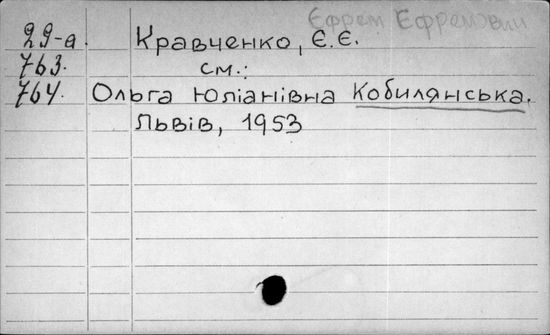 Єфрем Ефремович
29-а. Кравченко, Є.Є.
763. см.:
764. Ольга Юліанівна Кобилянська.
Львів, 1953